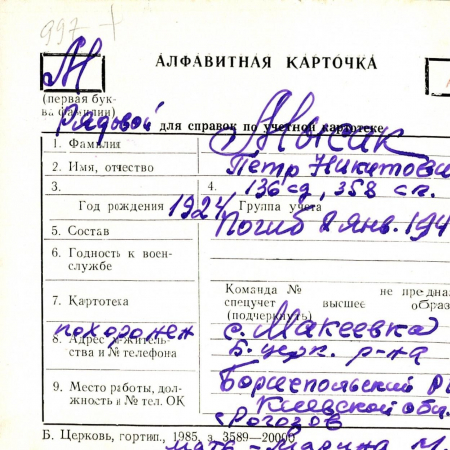 997 +
АЛФАВИТНАЯ КАРТОЧКА
М
(первая бук-
ва фамилии)
Рядовой для справок по учетной картотеке
1. Фамилия Мысак
2. Имя, отчество Петр Никитови
3. 4. 136 сд, 358 сп.
Год рождения 1924, Группа учета
5. Состав Погиб 2 янв. 194
6. Годность к воен-
службе
7. Картотека
Команда № не предна
спецучет высшее образ
(подчеркнуть)
похоронен с. Макеевка
8. Адрес места житель-
ства и № телефона
Б. церк. р-на
9. Место работы, дол-
жность и № тел. ОК
Бориспольский
Киевской
с Рогозов
Б. Церковь, гортип., 1985, з. 3589—20000
мать - Марина М.